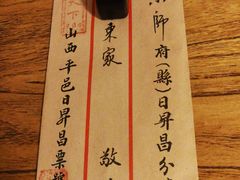 師府(縣)日昇昌分
東家 敬
天下
山西平邑日昇昌票號